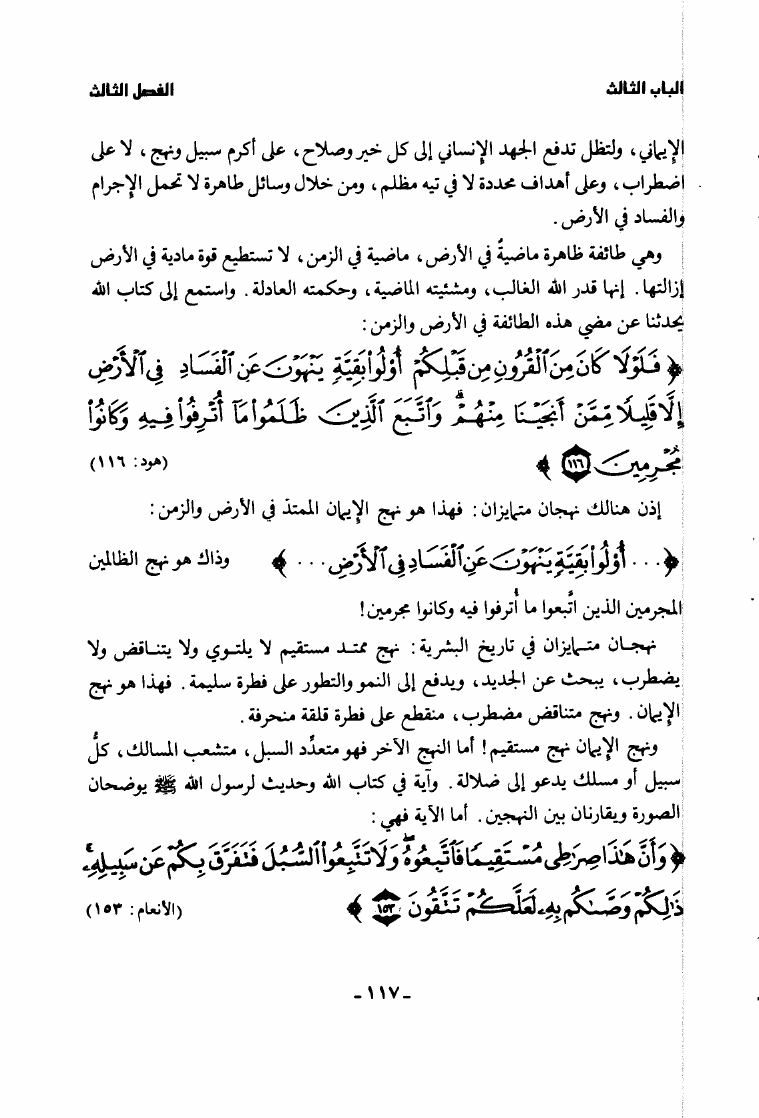 الباب الثالث الفصل الثالث
الإيماني، ولتظل تدفع الجهد الإنساني إلى كل خير وصلاح، على أكرم سبيل ونهج، لا على
اضطراب، وعلى أهداف محددة لا في تيه مظلم، ومن خلال وسائل طاهرة لا تحمل الإجرام
والفساد في الأرض.
وهي طائفة ظاهرة ماضيةٌ في الأرض، ماضية في الزمن، لا تستطيع قوة مادية في الأرض
إزالتها. إنها قدر الله الغالب، ومشئيته الماضية، وحكمته العادلة. واستمع إلى كتاب الله
يحدثنا عن مضي هذه الطائفة في الأرض والزمن:
﴿ فَلَوْلَا كَانَ مِنَ ٱلْقُرُونِ مِن قَبْلِكُمْ أُو۟لُوا۟ بَقِيَّةٍ يَنْهَوْنَ عَنِ ٱلْفَسَادِ فِى ٱلْأَرْضِ
إِلَّا قَلِيلًا مِّمَّنْ أَنجَيْنَا مِنْهُمْ ۗ وَٱتَّبَعَ ٱلَّذِينَ ظَلَمُوا۟ مَآ أُتْرِفُوا۟ فِيهِ وَكَانُوا۟
مُجْرِمِينَ ١١٦ ﴾ (هود: ١١٦)
إذن هنالك نهجان متمايزان: فهذا هو نهج الإيمان الممتدّ في الأرض والزمن:
﴿ ... أُو۟لُوا۟ بَقِيَّةٍ يَنْهَوْنَ عَنِ ٱلْفَسَادِ فِى ٱلْأَرْضِ ... ﴾ وذاك هو نهج الظالمين
المجرمين الذين اتَّبعوا ما أُترفوا فيه وكانوا مجرمين!
نهجـان متـمايزان في تاريخ البشرية: نهج ممتـد مستقيم لا يلتـوي ولا يتنـاقض ولا
يضطرب، يبحث عن الجديد، ويدفع إلى النمو والتطور على فطرة سليمة. فهذا هو نهج
الإيمان. ونهج متناقض مضطرب، منقطع على فطرة قلقة منحرفة.
ونهج الإيمان نهج مستقيم! أما النهج الآخر فهو متعدِّد السبل، متشعب المسالك، كلُّ
سبيل أو مسلك يدعو إلى ضلالة. وآية في كتاب الله وحديث لرسول الله ﷺ يوضحان
الصورة ويقارنان بين النهجين. أما الآية فهي:
﴿ وَأَنَّ هَٰذَا صِرَٰطِى مُسْتَقِيمًا فَٱتَّبِعُوهُ ۖ وَلَا تَتَّبِعُوا۟ ٱلسُّبُلَ فَتَفَرَّقَ بِكُمْ عَن سَبِيلِهِۦ ۚ
ذَٰلِكُمْ وَصَّىٰكُم بِهِۦ لَعَلَّكُمْ تَتَّقُونَ ١٥٣ ﴾ (الأنعام: ١٥٣)
- ١١٧ -